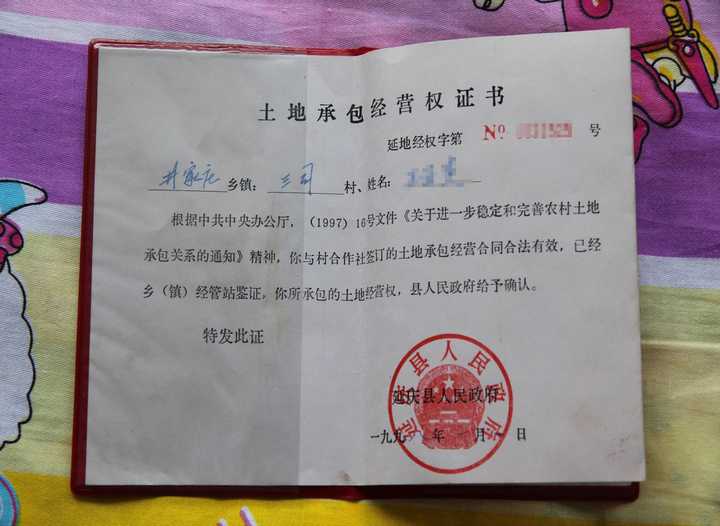 土地承包经营权证书
延地经权字第 № 号
井家庄乡镇: 三司村、姓名:
根据中共中央办公厅,(1997)16号文件《关于进一步稳定和完善农村土地
承包关系的通知》精神,你与村合作社签订的土地承包经营合同合法有效,已经
乡(镇)经管站鉴证,你所承包的土地经营权,县人民政府给予确认。
特发此证
延庆县人民政府
延庆县人民政府
一九九 年 月 日